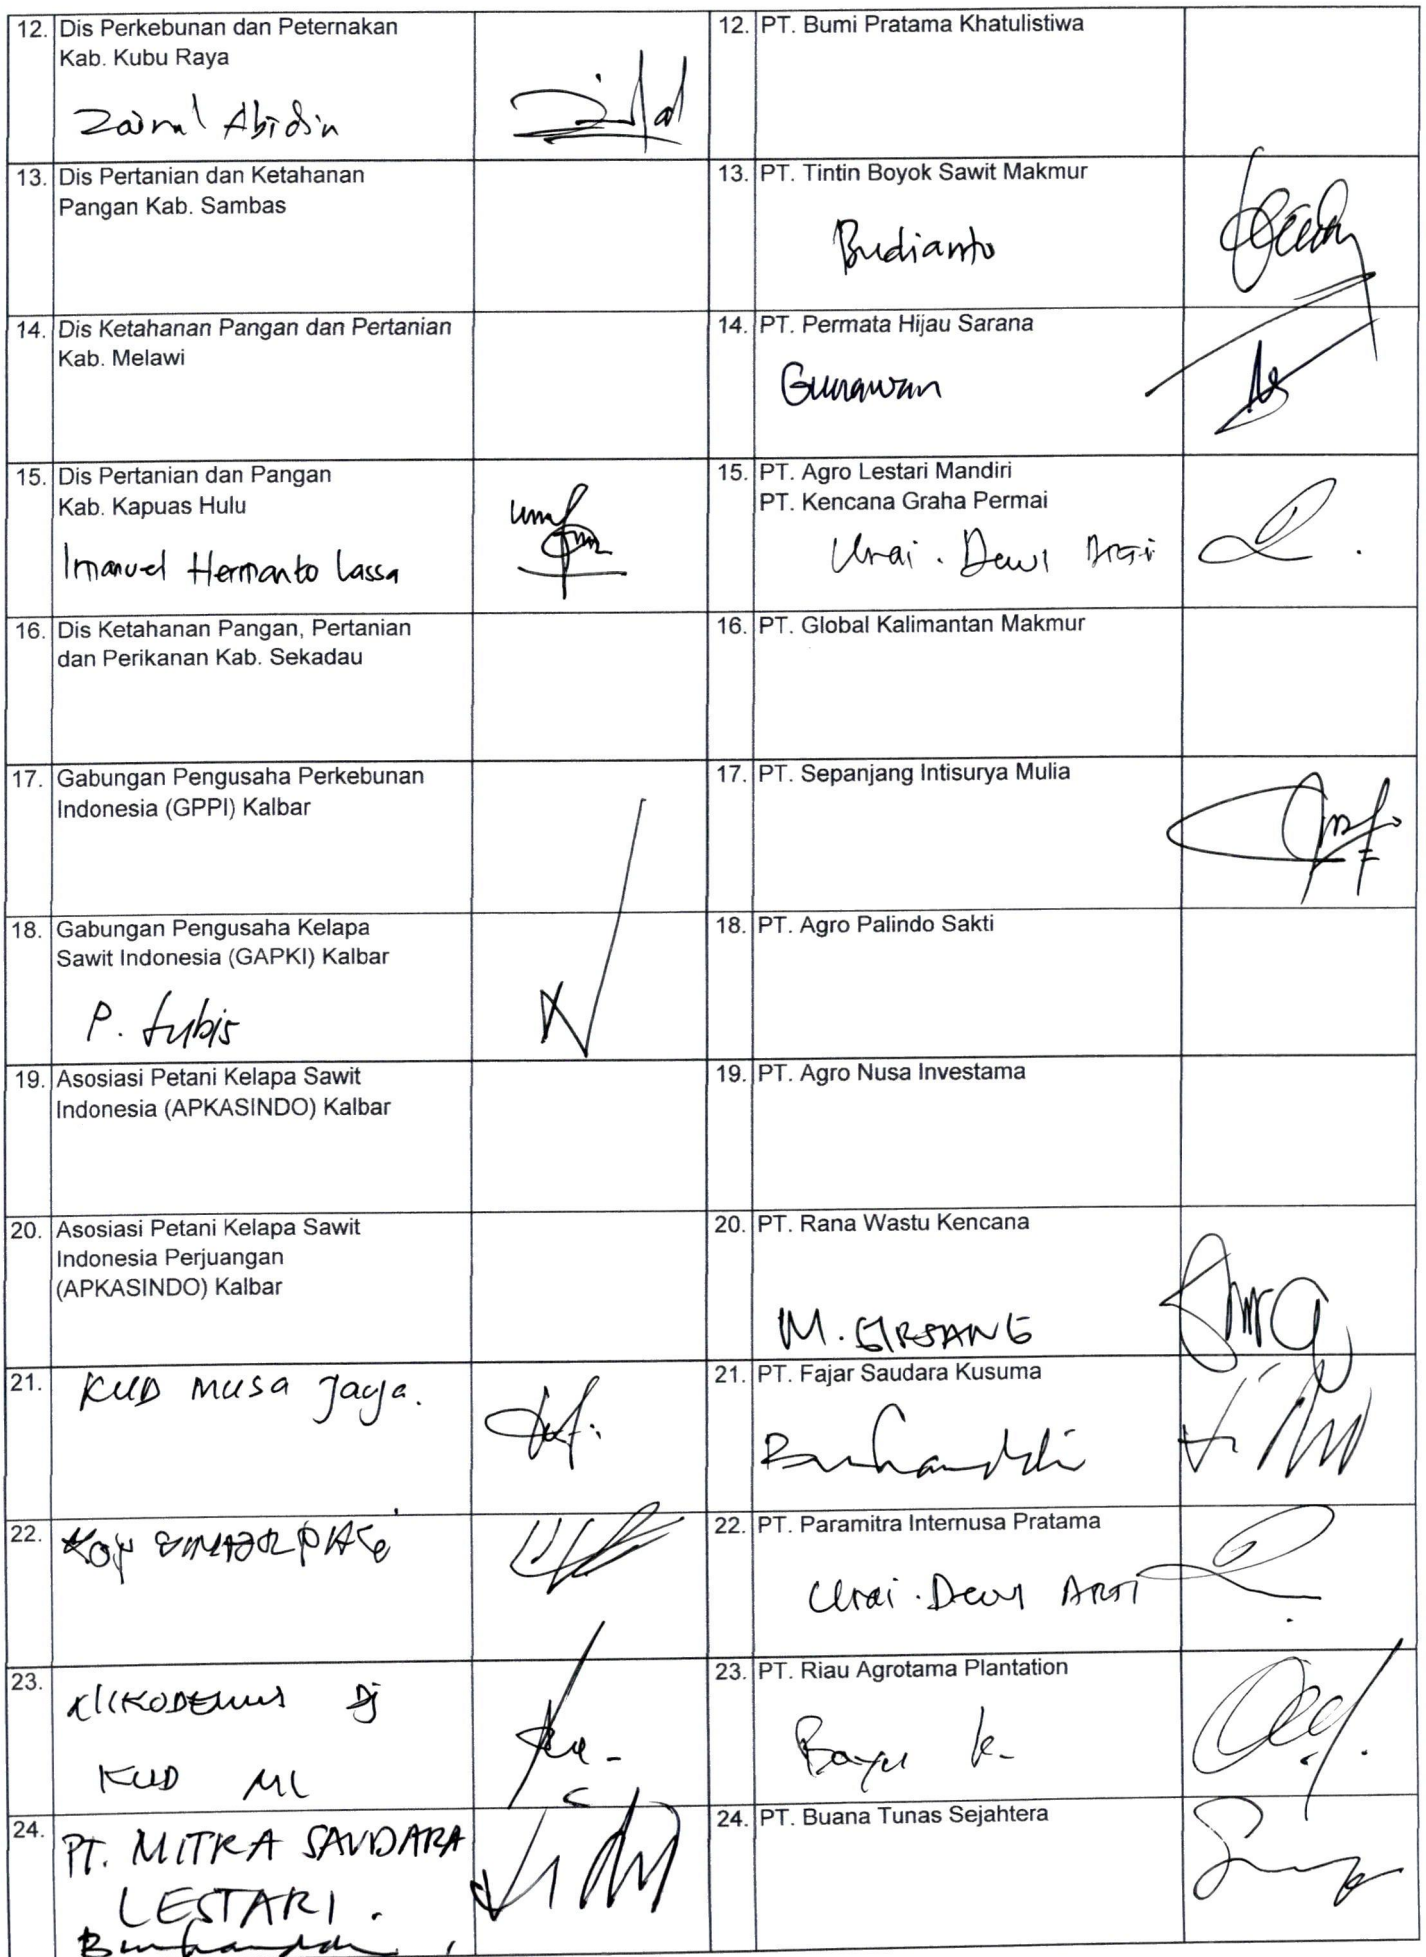 12. Dis Perkebunan dan Peternakan
Kab. Kubu Raya
Zainul Abidin
12. PT. Bumi Pratama Khatulistiwa
13. Dis Pertanian dan Ketahanan
Pangan Kab. Sambas
13. PT. Tintin Boyok Sawit Makmur
Budianto
14. Dis Ketahanan Pangan dan Pertanian
Kab. Melawi
14. PT. Permata Hijau Sarana
Gunawan
15. Dis Pertanian dan Pangan
Kab. Kapuas Hulu
Imanuel Hermanto Lassa
15. PT. Agro Lestari Mandiri
PT. Kencana Graha Permai
Urai. Dewi Arti
16. Dis Ketahanan Pangan, Pertanian
dan Perikanan Kab. Sekadau
16. PT. Global Kalimantan Makmur
17. Gabungan Pengusaha Perkebunan
Indonesia (GPPI) Kalbar
17. PT. Sepanjang Intisurya Mulia
18. Gabungan Pengusaha Kelapa
Sawit Indonesia (GAPKI) Kalbar
P. Lubis
18. PT. Agro Palindo Sakti
19. Asosiasi Petani Kelapa Sawit
Indonesia (APKASINDO) Kalbar
19. PT. Agro Nusa Investama
20. Asosiasi Petani Kelapa Sawit
Indonesia Perjuangan
(APKASINDO) Kalbar
20. PT. Rana Wastu Kencana
M.
21. KUD Musa Jaya.
21. PT. Fajar Saudara Kusuma
Burhanuddin
22. Kop
22. PT. Paramitra Internusa Pratama
Urai. Dewi Arti
23. Nikodemus Dj
KUD ML
23. PT. Riau Agrotama Plantation
Bayu K-
24. PT. MITRA SAUDARA
LESTARI.
Burhanuddin
24. PT. Buana Tunas Sejahtera